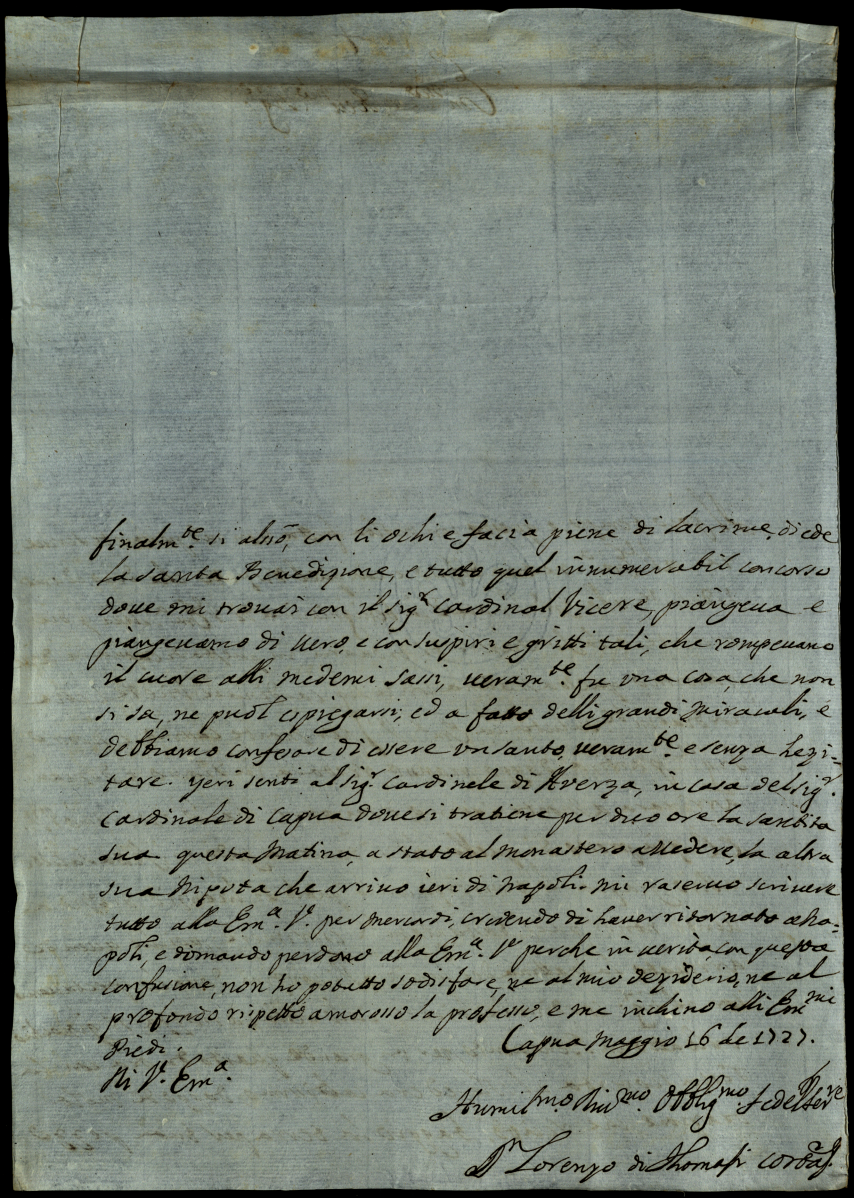 finalm.te si alsò, con li ochi e facia piene di lacrime, diede
la santa Benedizione, e tutto quel innumerabil concorso
doue mi trouai con il sig.r Cardinal Vicere, piangeua e
piangeuamo di uero, e con suspiri e gritti tali, che rompeuano
il cuore alli medemi sassi, ueram.te fu una cosa, che non
si sa, ne puol espiegarsi, ed a fatto delli grandi miracoli, e
debbiamo confesare di essere un santo, ueram.te e senza hezi=
tare. yeri senti al sig.r Cardinele di Averza, in casa del sig.r
Cardinale di Capua doue si tratiene per duo ore la santita
sua questa Matina, a stato al monastero a uedere, la altra
sua Niputa che arriuo ieri di Napoli. mi raseruo scriuere
tutto alla Em.a V.a per mercordi, credendo di hauer ritornato a Na=
poli, e domando perdono alla Em.a V.a perche in uerita, con questa
confusione, non ho potutto sodisfare, ne al mio deziderio, ne al
profondo rispetto amoroso la professo, e me inchino alli Em.mi
Piedi.
Capua Maggio 16 de 1727.
Di V.a Em.a
Humilmo. Diu.mo. Obblig.mo. fedel Ser.re
D.n Lorenzo di Thomasi